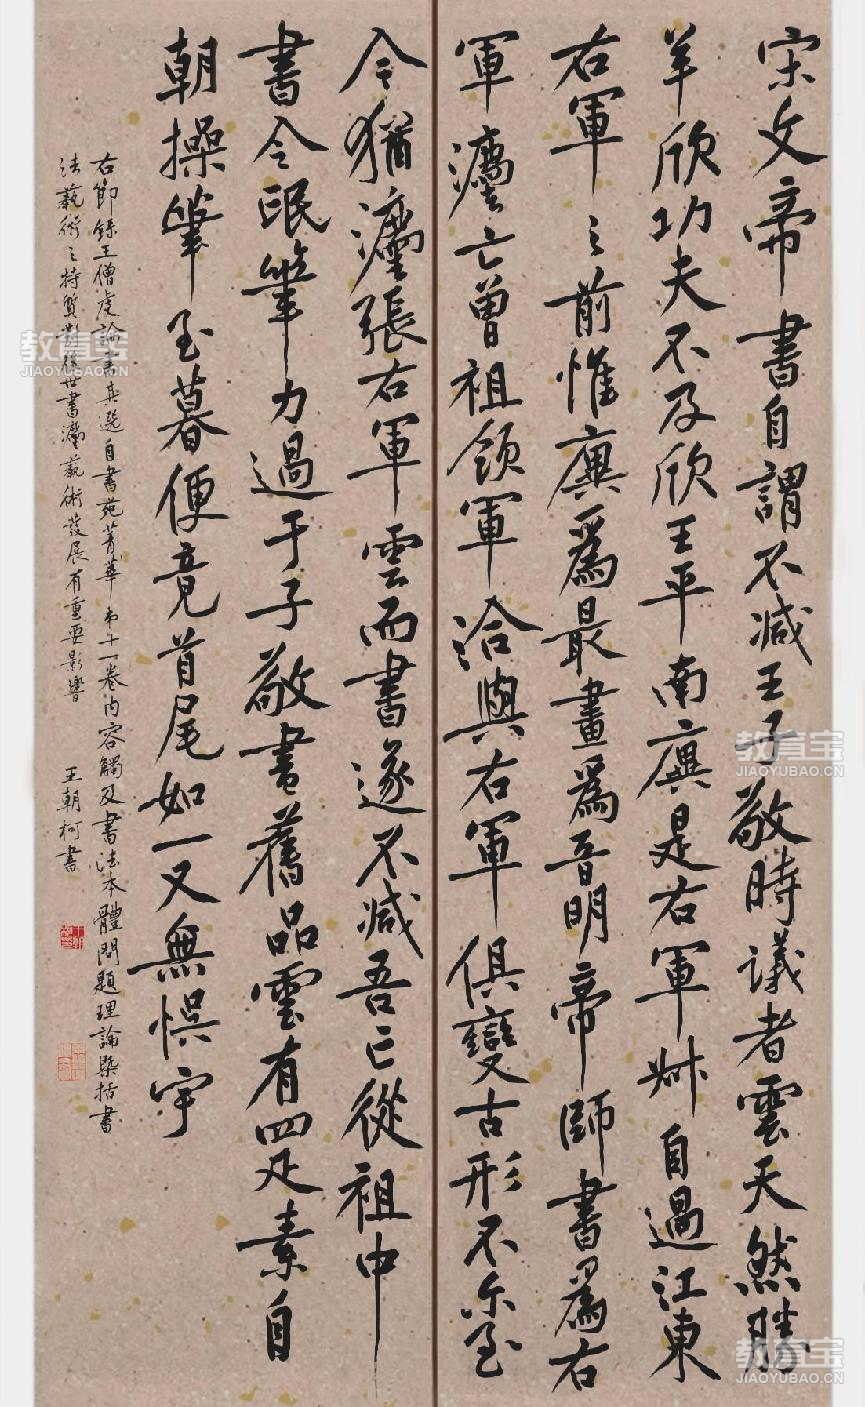 宋文帝書自謂不減王子敬時議者雲天然勝
羊欣功夫不及欣王平南廙是右軍叔自過江東
右軍之前惟廙爲最畫爲晉明帝師書爲右
軍灋亡曾祖領軍洽與右軍俱變古形不尒至
今猶灋張右軍雲而書遂不減吾亡從祖中
書令珉筆力過于子敬書舊品雲有四疋素自
朝操筆至暮便竟首尾如一又無悮字
右節錄王僧虔論書其選自書苑菁華第十一卷內容觸及書法本體問題理論槩括書
法藝術之特質對後世書灋藝術發展有重要影響 王朝柯書
教育宝
JIAOYUBAO.CN
教育宝
JIAOYUBAO.CN
教育宝
JIAOYUBAO.CN